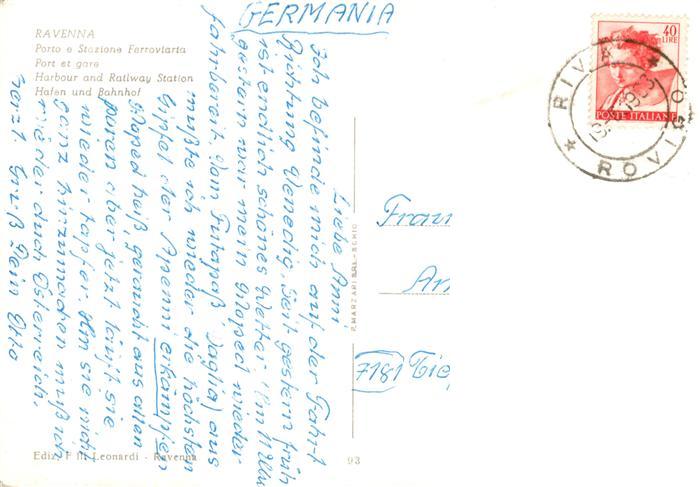 GERMANIA
RAVENNA
Porto e Stazione Ferroviaria
Port et gare
Harbour and Railway Station
Hafen und Bahnhof
40
LIRE
POSTE ITALIANE
RIVA
ROVIGO
Liebe Anni!
Ich befinde mich auf der Fahrt
Richtung Venedig. Seit gestern früh
ist endlich schönes Wetter. Um 11 Uhr
gestern war mein Moped wieder
fahrbereit. Vom Futapaß aus
mußte ich wieder die höchsten
Gipfel der Apenni erkämpfen
Moped heiß geraucht aus allen
Poren aber jetzt läuft sie
wieder tapfer. Um sie nicht
ganz hinzumachen muß ich
wieder durch Österreich.
Herzl. Gruß Dein Otto
Frau
An
7181 Tie
P. MARZARI S.R.L. - SCHIO
Ediz. F.lli Leonardi - Ravenna
93